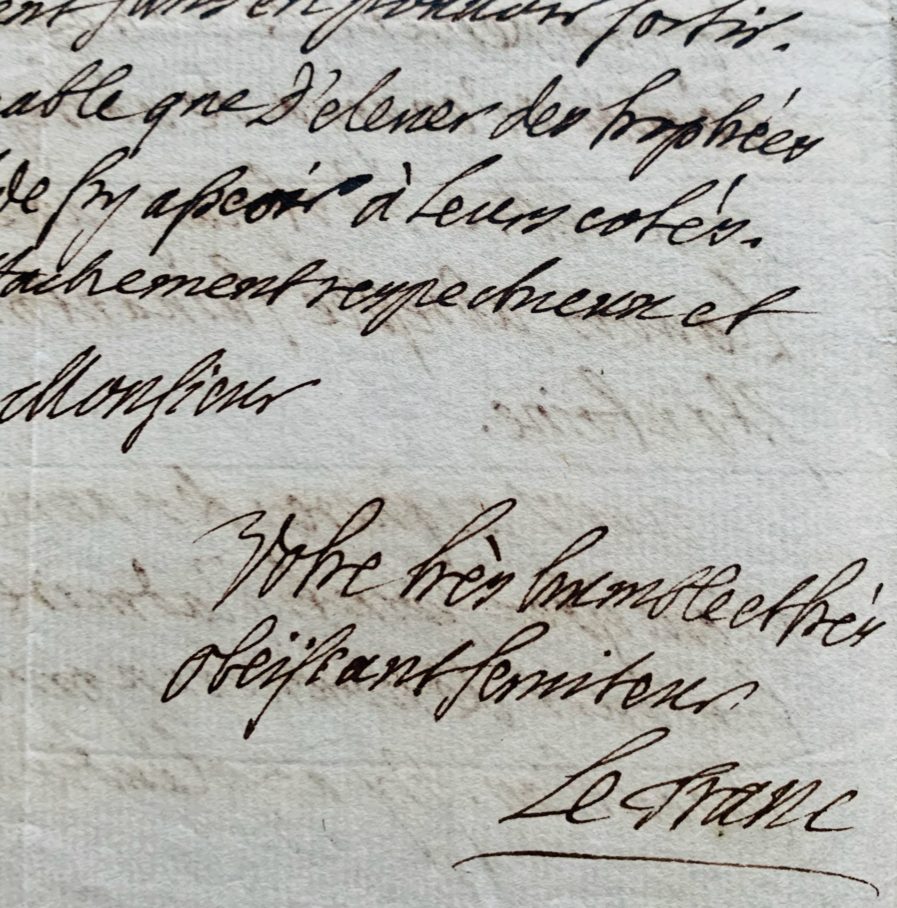 ent sans en pouvoir sortir.
able que D'elever des trophées
de s'y asseoir à leurs cotés.
tachement respectueux et
Monsieur
Votre très humble et très
obéissant serviteur
Le Franc